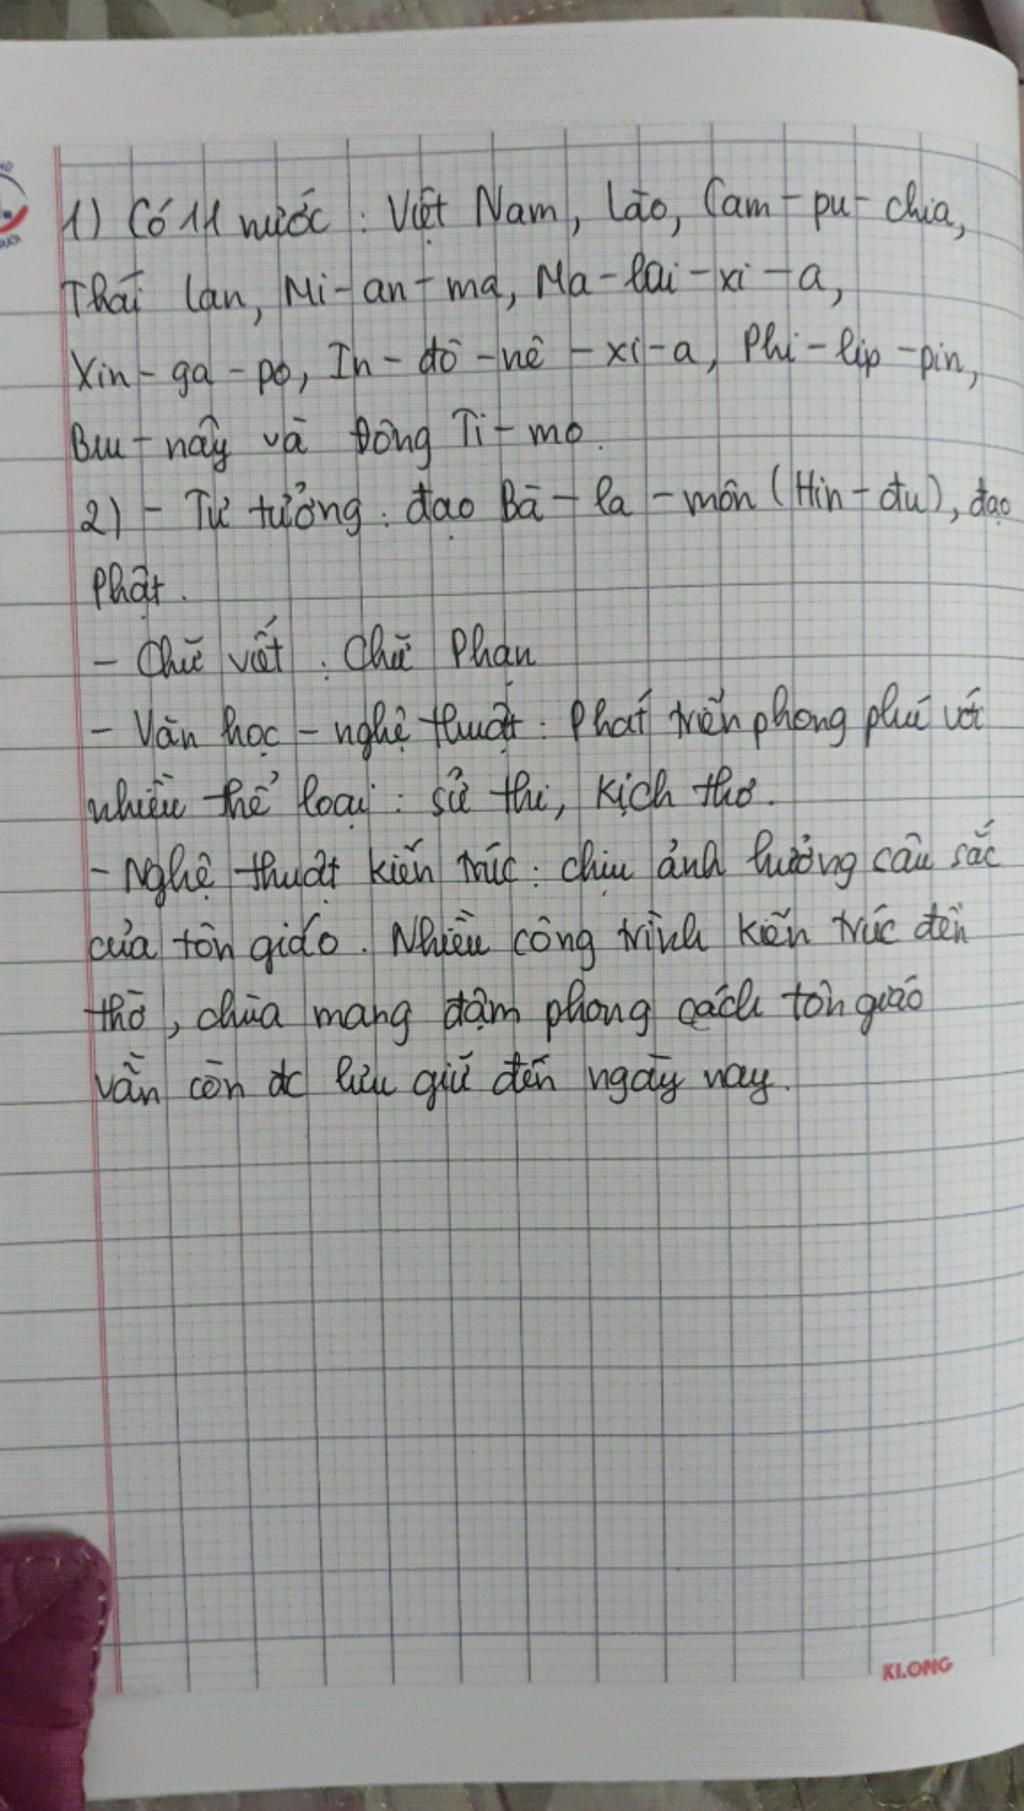 1) Có 11 nước : Việt Nam, Lào, Cam-pu-chia,
Thái Lan, Mi-an-ma, Ma-lai-xi-a,
Xin-ga-po, In-đô-nê-xi-a, Phi-lip-pin,
Bru-nây và Đông Ti-mo.
2) - Tư tưởng : đạo Bà-la-môn (Hin-đu), đạo
Phật.
- Chữ viết : Chữ Phạn
- Văn học - nghệ thuật : Phát triển phong phú với
nhiều thể loại : sử thi, kịch thơ.
- Nghệ thuật kiến trúc : chịu ảnh hưởng câu sắc
của tôn giáo. Nhiều công trình kiến trúc đền
thờ, chùa mang đậm phong cách tôn giáo
vẫn còn đc lưu giữ đến ngày nay.
KLONG